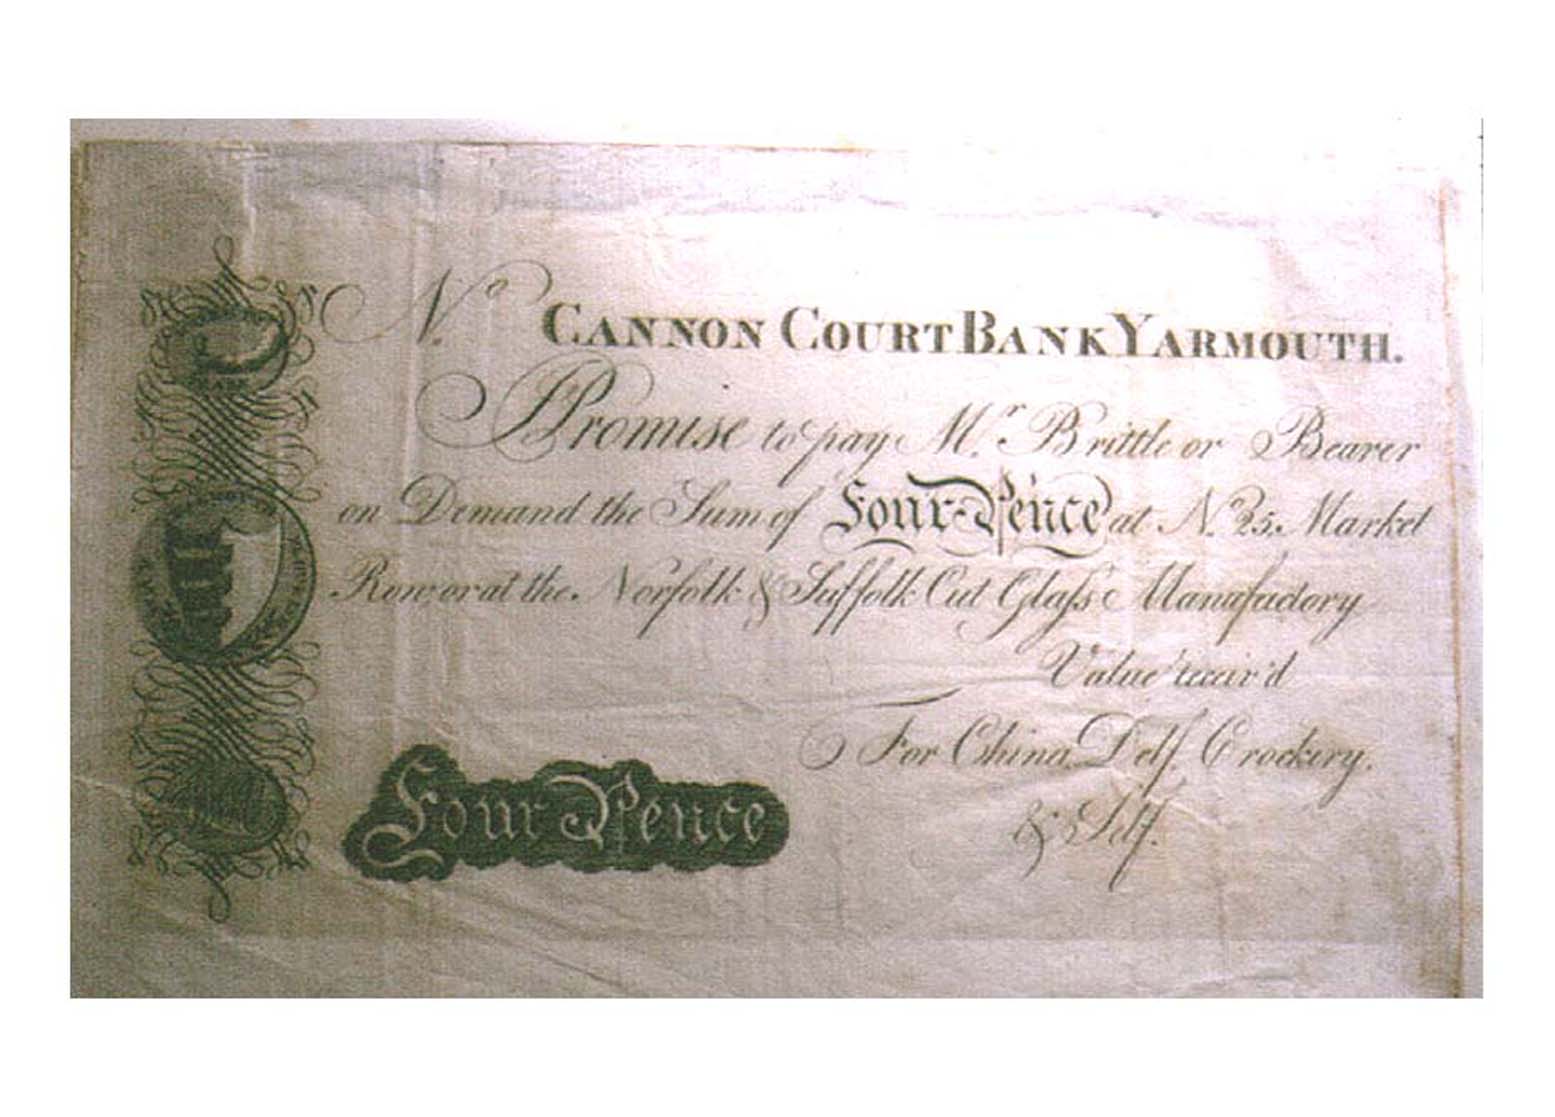 No.
CANNON COURT BANK YARMOUTH.
I Promise to pay Mr. Brittle or Bearer
on Demand the Sum of Four Pence at No. 25. Market
Row or at the Norfolk & Suffolk Cut Glaſs Manufactory
Value receiv'd
For China, Delf, Crockery,
& Self.
Four Pence